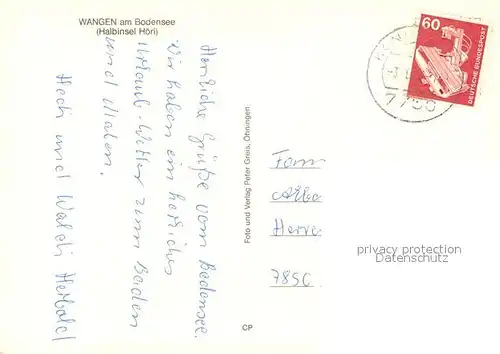 WANGEN am Bodensee
(Halbinsel Höri)
Herzliche Grüße vom Bodensee.
Wir haben ein herrliches
Urlaub-Wetter zum Baden
und Malen.
Hedi und Waldi
Foto und Verlag Peter Greis, Öhningen
CP
60
DEUTSCHE BUNDESPOST
Fam
7850
privacy protection
Datenschutz